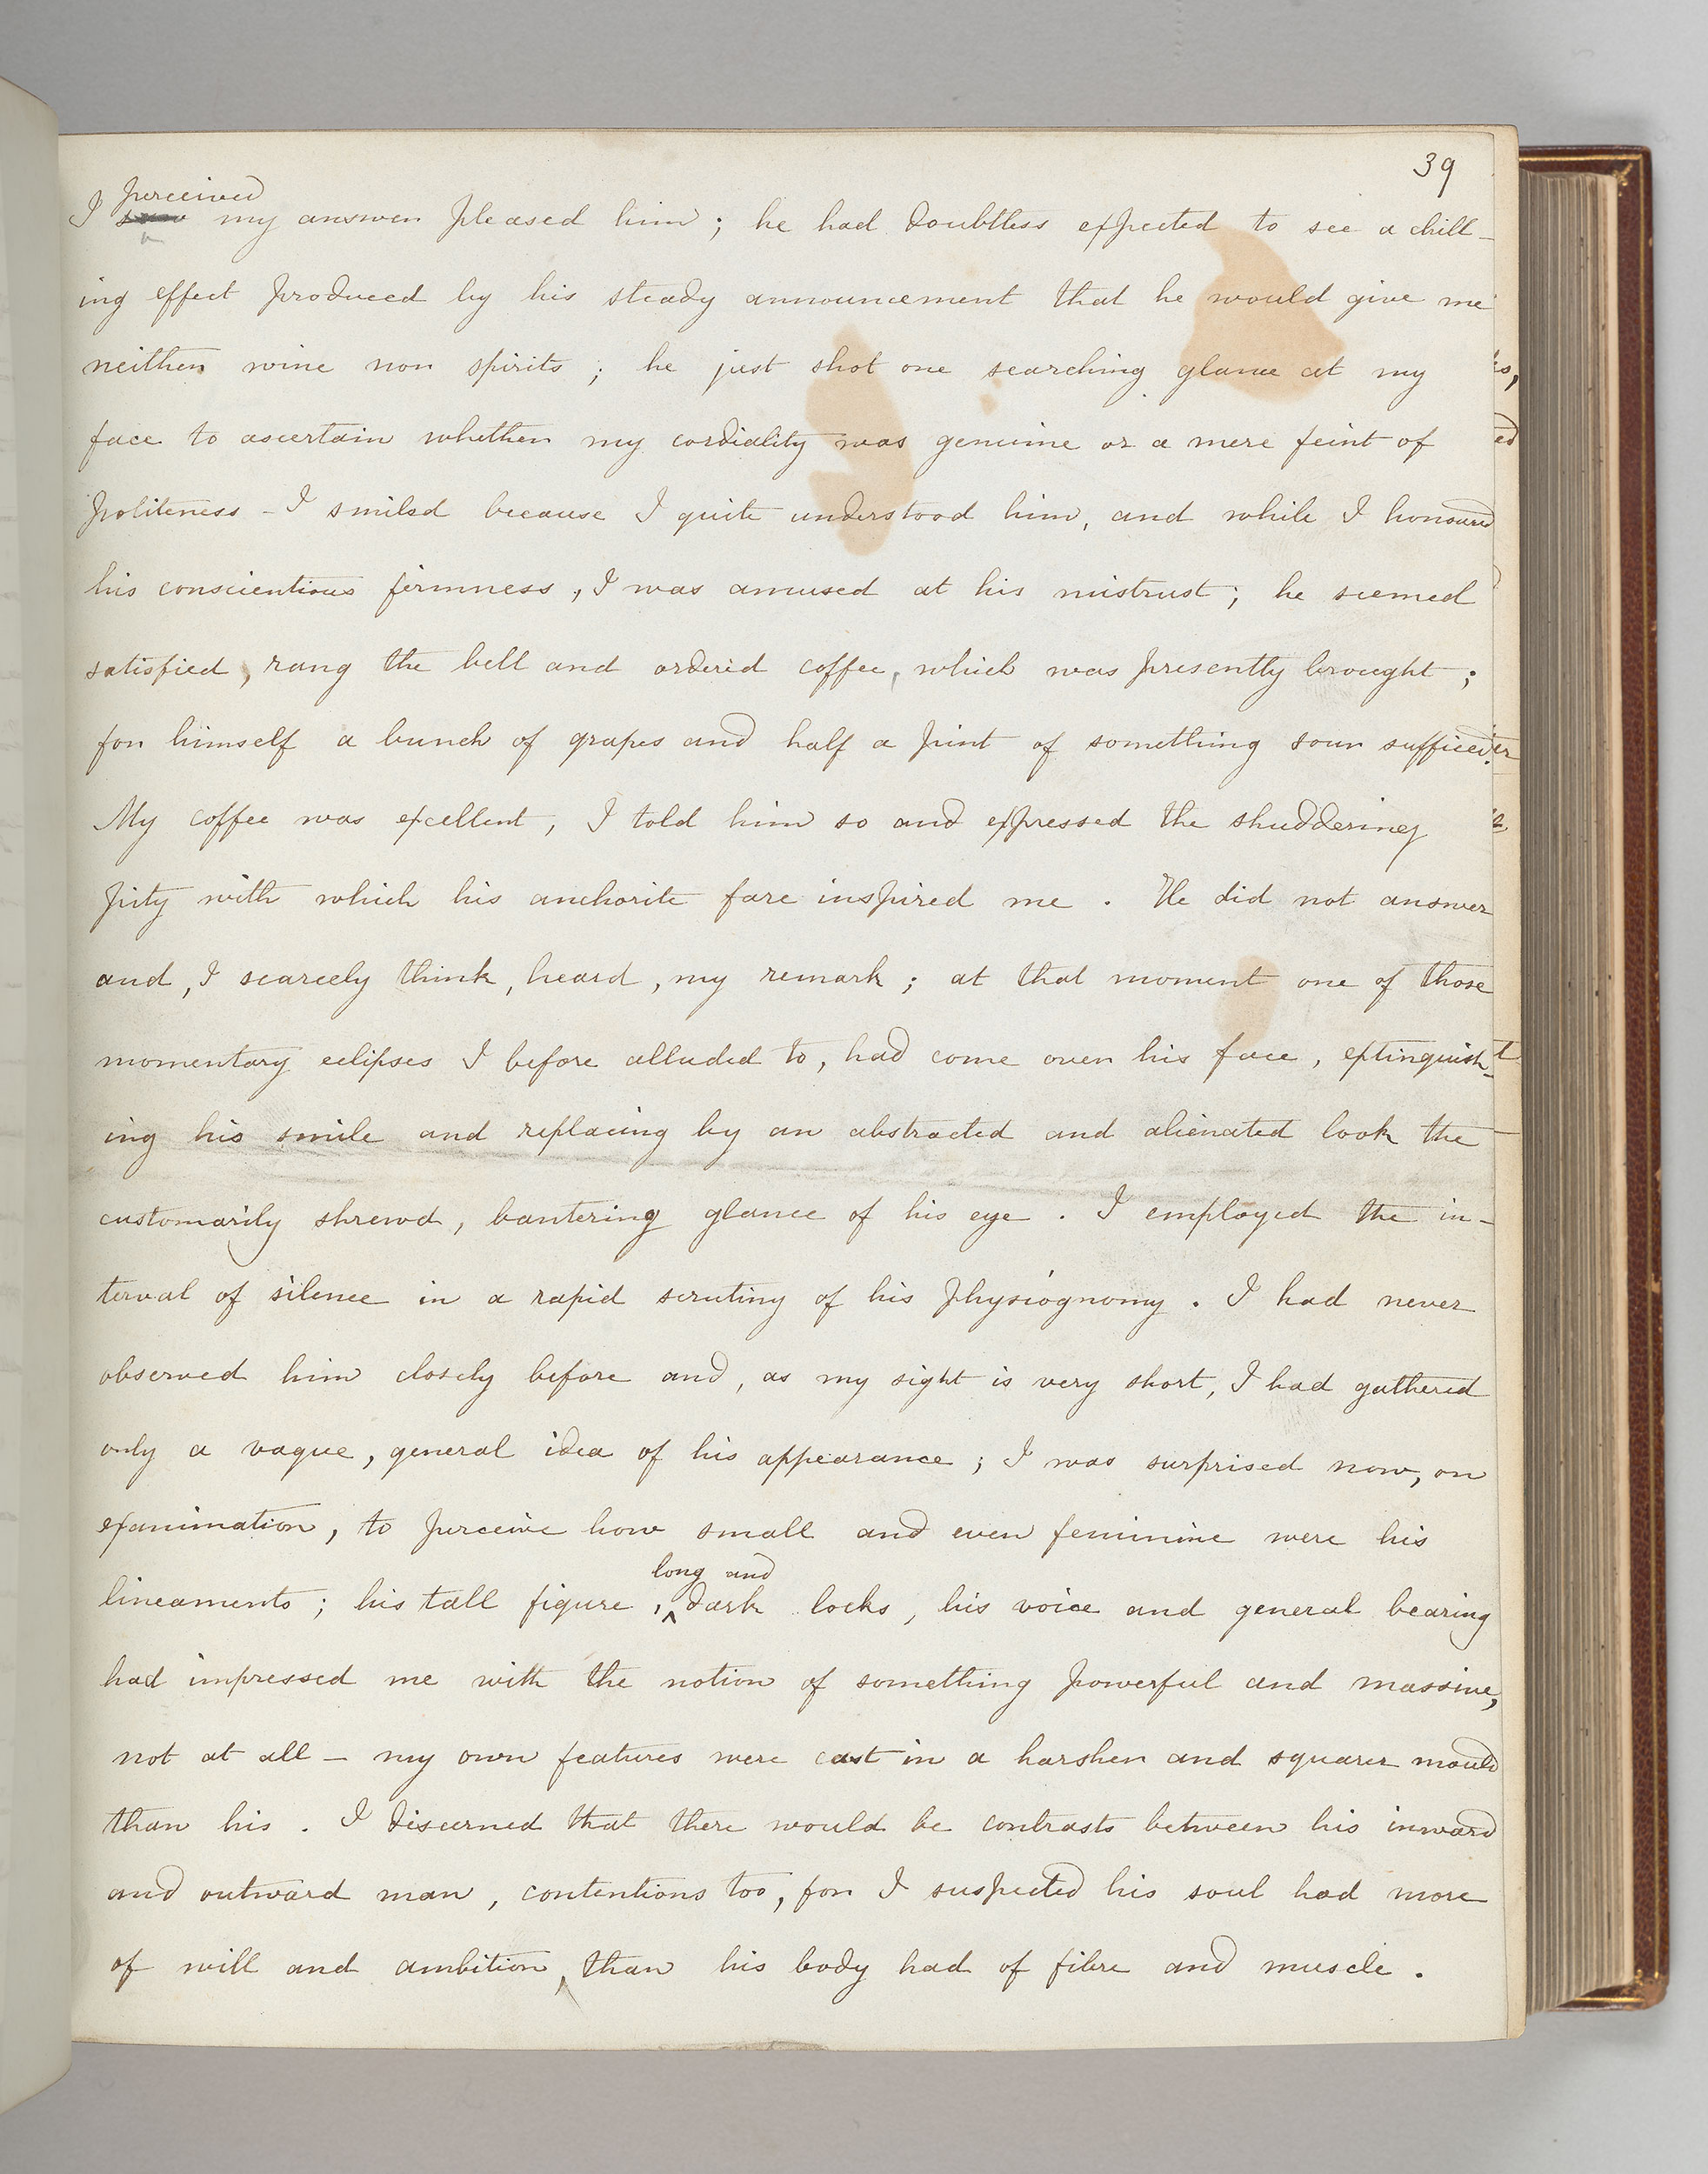 39
I perceived my answer pleased him; he had doubtless expected to see a chill-
ing effect produced by his steady announcement that he would give me
neither wine nor spirits; he just shot one searching glance at my
face to ascertain whether my cordiality was genuine or a mere feint of
politeness - I smiled because I quite understood him, and while I honoured
his conscientious firmness, I was amused at his mistrust; he seemed
satisfied, rang the bell and ordered coffee, which was presently brought;
for himself a bunch of grapes and half a pint of something sour sufficed.
My coffee was excellent, I told him so and expressed the shuddering
pity with which his anchorite fare inspired me. He did not answer
and, I scarcely think, heard, my remark; at that moment one of those
momentary eclipses I before alluded to, had come over his face, extinguish-
ing his smile and replacing by an abstracted and alienated look the
customarily shrewd, bantering glance of his eye. I employed the in-
terval of silence in a rapid scrutiny of his physiognomy. I had never
observed him closely before and, as my sight is very short, I had gathered
only a vague, general idea of his appearance; I was surprised now, on
examination, to perceive how small and even feminine were his
lineaments; his tall figure, long and dark locks, his voice and general bearing
had impressed me with the notion of something powerful and massive,
not at all — my own features were cast in a harsher and squarer mould
than his. I discerned that there would be contrasts between his inward
and outward man, contentions too, for I suspected his soul had more
of will and ambition, than his body had of fibre and muscle.